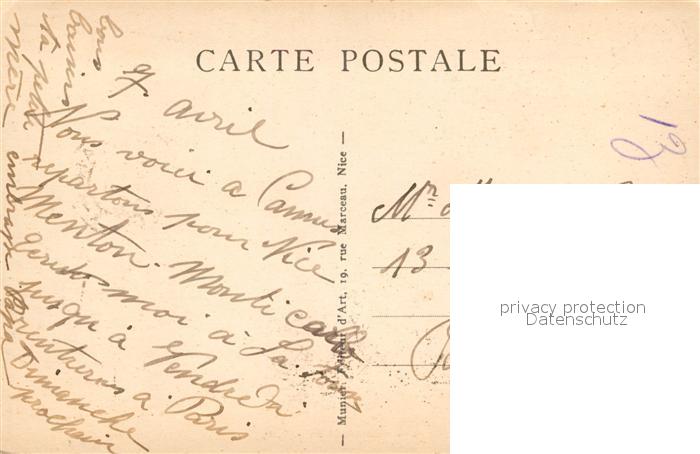 CARTE POSTALE
7 avril
Nous voici a Cannes
repartons pour Nice
Menton. Monte carlo
Ecrivez moi à La
jusqu'à Vendredi
Rentrerons à Paris
Dimanche
prochain
Bons
baisers
ta petite
mère
embrasse
papa
— Munier, Editeur d'Art, 19, rue Marceau, Nice —
13
privacy protection
Datenschutz